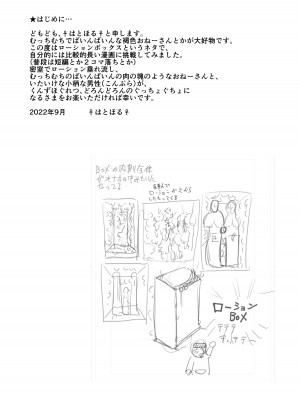 ★はじめに…
どもども、♀はとほる♀と申します。
むっちむちでばいんばいんな褐色おねーさんとかが大好物です。
この度はローションボックスというネタで、
自分的には比較的長い漫画に挑戦してみました。
(普段は短編とか2コマ落ちとか)
密室でローション垂れ流し、
むっちむちのばいんばいんの肉の塊のようなおねーさんと、
いたいけな小柄な男性(こんぶ♂)が、
くんずほぐれつ、どろんどろんのぐっちょぐちょに
なるさまをお楽しみいただければ幸いです。
2022年9月 ♀はとほる♀
BOXの内側全体
がオナホの中みたいに
なってる
ローション
したたってくる
ローション
BOX
テテテ